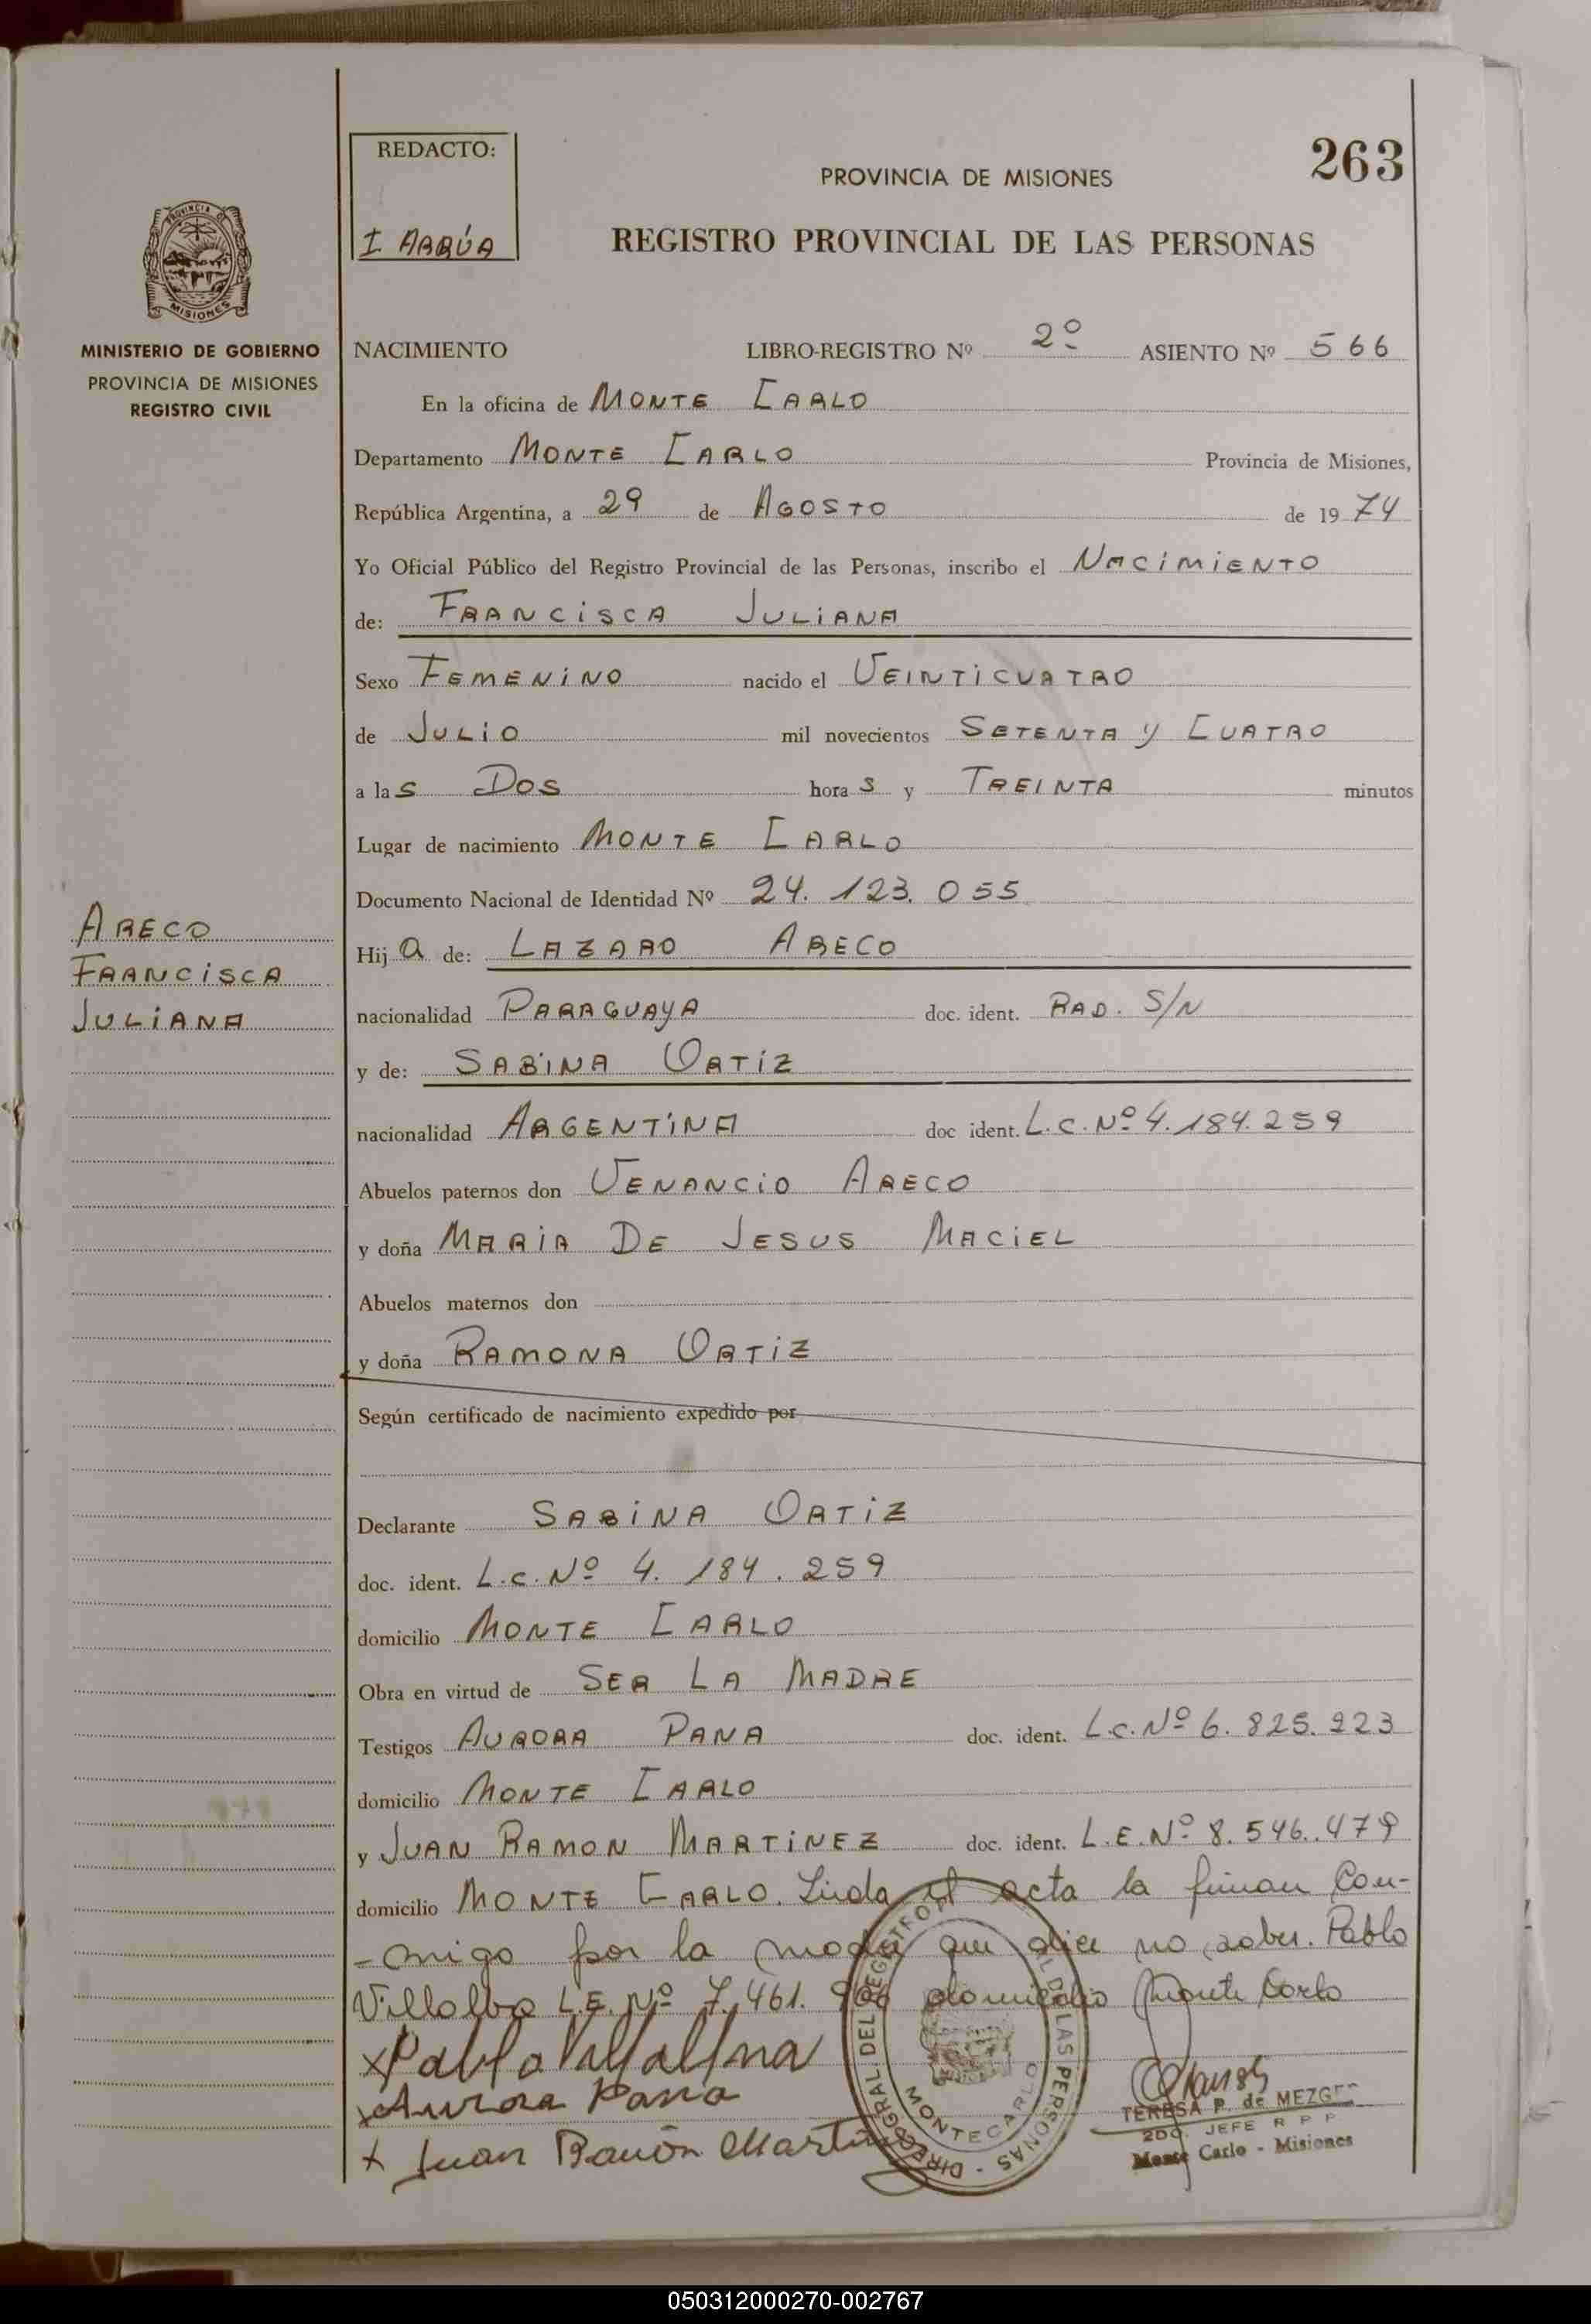 REDACTO:
I ARRÚA
263
PROVINCIA DE MISIONES
REGISTRO PROVINCIAL DE LAS PERSONAS
PROVINCIA DE
MISIONES
MINISTERIO DE GOBIERNO
PROVINCIA DE MISIONES
REGISTRO CIVIL
NACIMIENTO LIBRO-REGISTRO Nº 2º ASIENTO Nº 566
En la oficina de MONTE CARLO
Departamento MONTE CARLO Provincia de Misiones,
República Argentina, a 29 de AGOSTO de 1974
Yo Oficial Público del Registro Provincial de las Personas, inscribo el NACIMIENTO
de: FRANCISCA JULIANA
Sexo FEMENINO nacido el VEINTICUATRO
de JULIO mil novecientos SETENTA y CUATRO
a las DOS horas y TREINTA minutos
Lugar de nacimiento MONTE CARLO
Documento Nacional de Identidad Nº 24.123.055
ARECO
FRANCISCA
JULIANA
Hija de: LAZARO ARECO
nacionalidad PARAGUAYA doc. ident. RAD. S/N
y de: SABINA ORTIZ
nacionalidad ARGENTINA doc ident. L.C. Nº 4.184.259
Abuelos paternos don VENANCIO ARECO
y doña MARIA DE JESUS MACIEL
Abuelos maternos don
y doña RAMONA ORTIZ
Según certificado de nacimiento expedido por
Declarante SABINA ORTIZ
doc. ident. L.C. Nº 4.184.259
domicilio MONTE CARLO
Obra en virtud de SER LA MADRE
Testigos AURORA PANA doc. ident. L.C. Nº 6.825.223
domicilio MONTE CARLO
y JUAN RAMON MARTINEZ doc. ident. L.E. Nº 8.546.479
domicilio MONTE CARLO. Leida el acta la firman Con-
-migo por la madre que dice no saber. Pablo
Villalba L.E. Nº 7.461. domicilio Monte Carlo
x Pablo Villalba
x Aurora Pana
x Juan Ramón Martinez
DIREC. GRAL. DEL REGISTRO DE LAS PERSONAS -
MONTECARLO
TERESA P. de MEZGER
2DO. JEFE R P P
Monte Carlo - Misiones
050312000270-002767